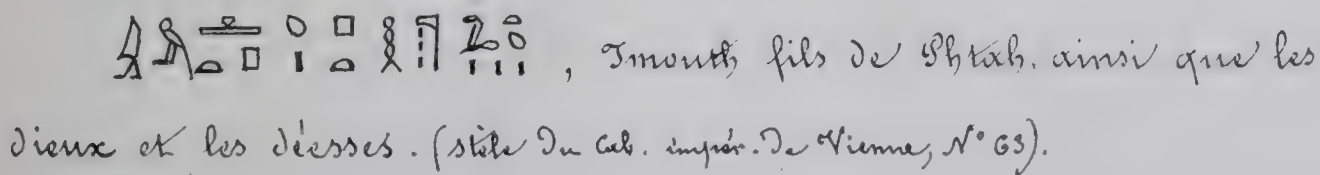 , Imouth fils de Phtah. ainsi que les
dieux et les déesses. (stèle du Cab. impér. de Vienne, N° 63).